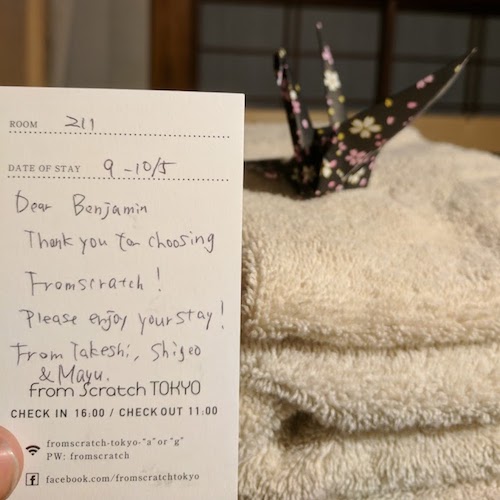 ROOM 211
DATE OF STAY 9-10/5
Dear Benjamin
Thank you for choosing
Fromscratch!
Please enjoy your stay!
From Takeshi, Shigeo
& Mayu.
from Scratch TOKYO
CHECK IN 16:00 / CHECK OUT 11:00
fromscratch-tokyo-"a" or "g"
PW: fromscratch
facebook.com/fromscratchtokyo